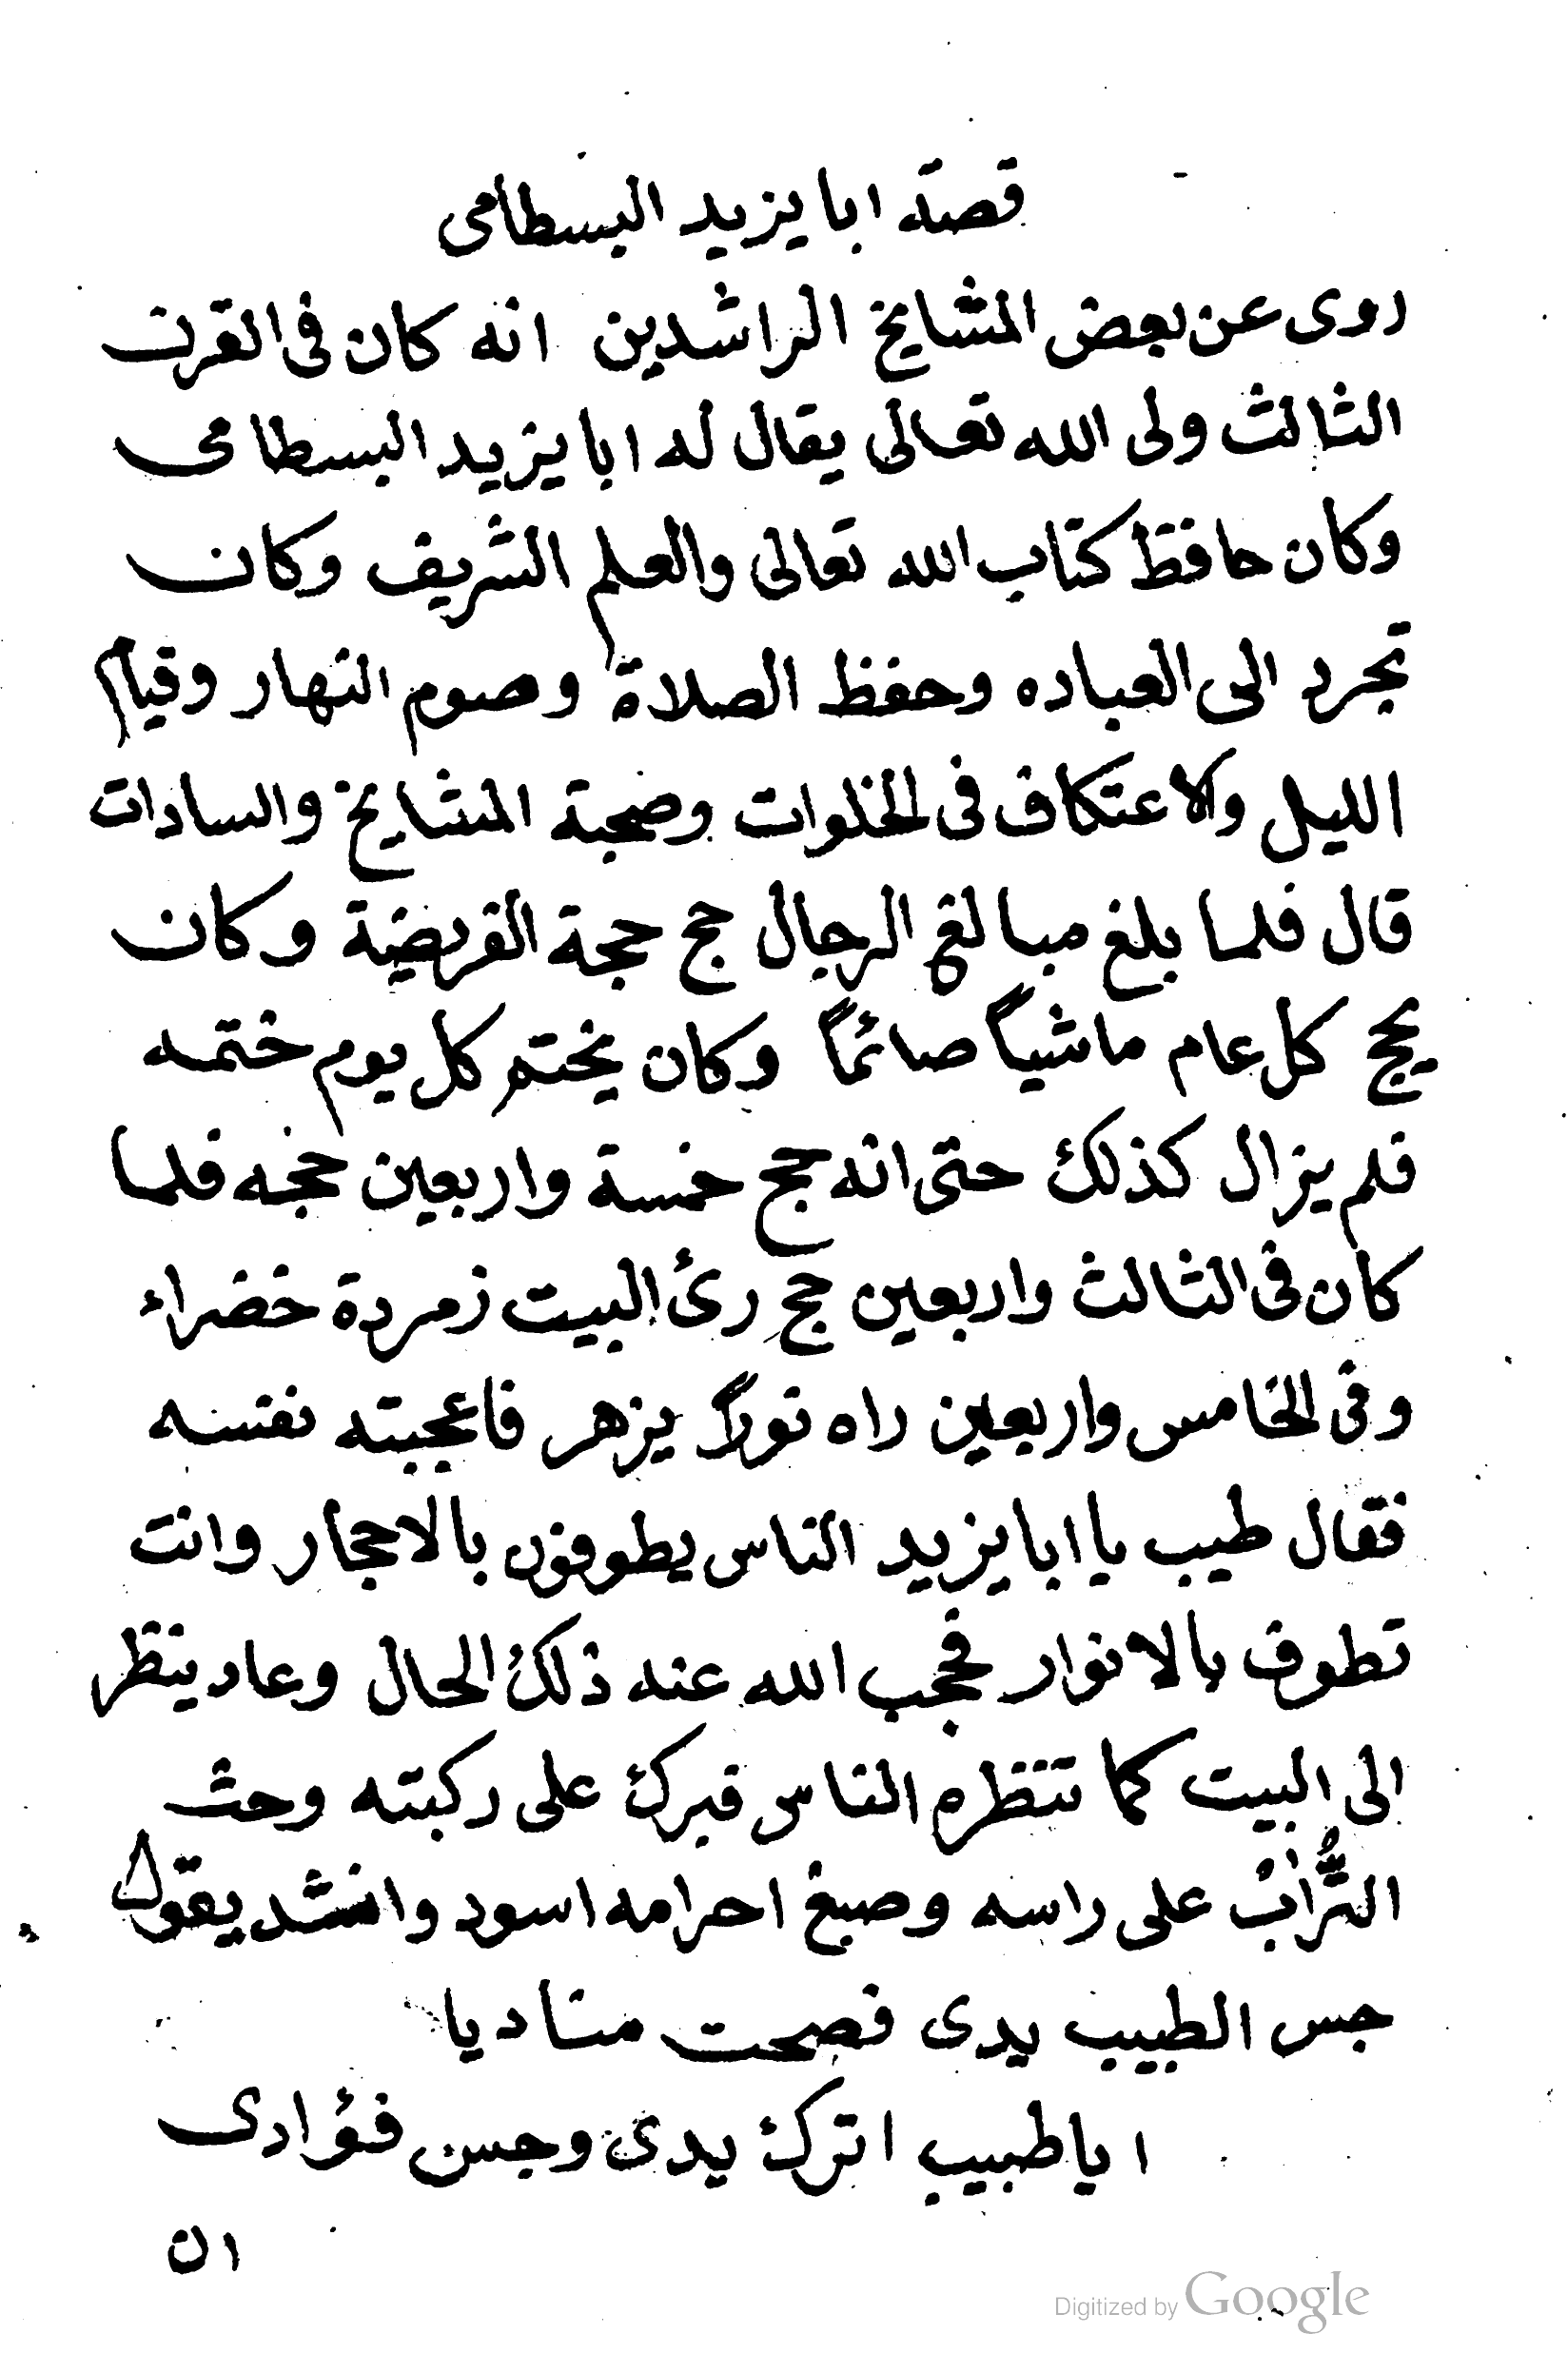 قصة ابا يزيد البسطامى
روى عن بعض المشايخ الراشدين انه كان فى القرن
الثالث ولى الله تعالى يقال له ابا يزيد البسطامى
وكان حافظ كتاب الله تعالى والعلم الشريف وكان
تجرد الى العباده وحفظ الصلاة وصوم النهار وقيام
الليل والاعتكاف فى الخلوات وصحبة المشايخ والسادات
قال فلما بلغ مبالغ الرجال حج حجة الفريضة وكان
يحج كل عام ماشياً صائماً وكان يختم كل يوم ختمه
فلم يزال كذلك حتى انه حج خمسة واربعين حجه فلما
كان فى الثالث واربعين حج رئ البيت زمردة خضراء
وفى الخامس واربعين راه نوراً يزهر فاعجبته نفسه
فقال طيب يا ابا يزيد الناس يطوفون بالاحجار وانت
تطوف بالانوار فحجب الله عنه ذلك الحال وعاد ينظر
الى البيت كما تنظره الناس فبرك على ركبته وحث
التُّرابْ على راسه وصبغ احرامه اسود وانشد يقول
جس الطبيب يدى فصحت مناديا
ايا طبيب اترك يدى وجس فؤادى
ان
Digitized by Google